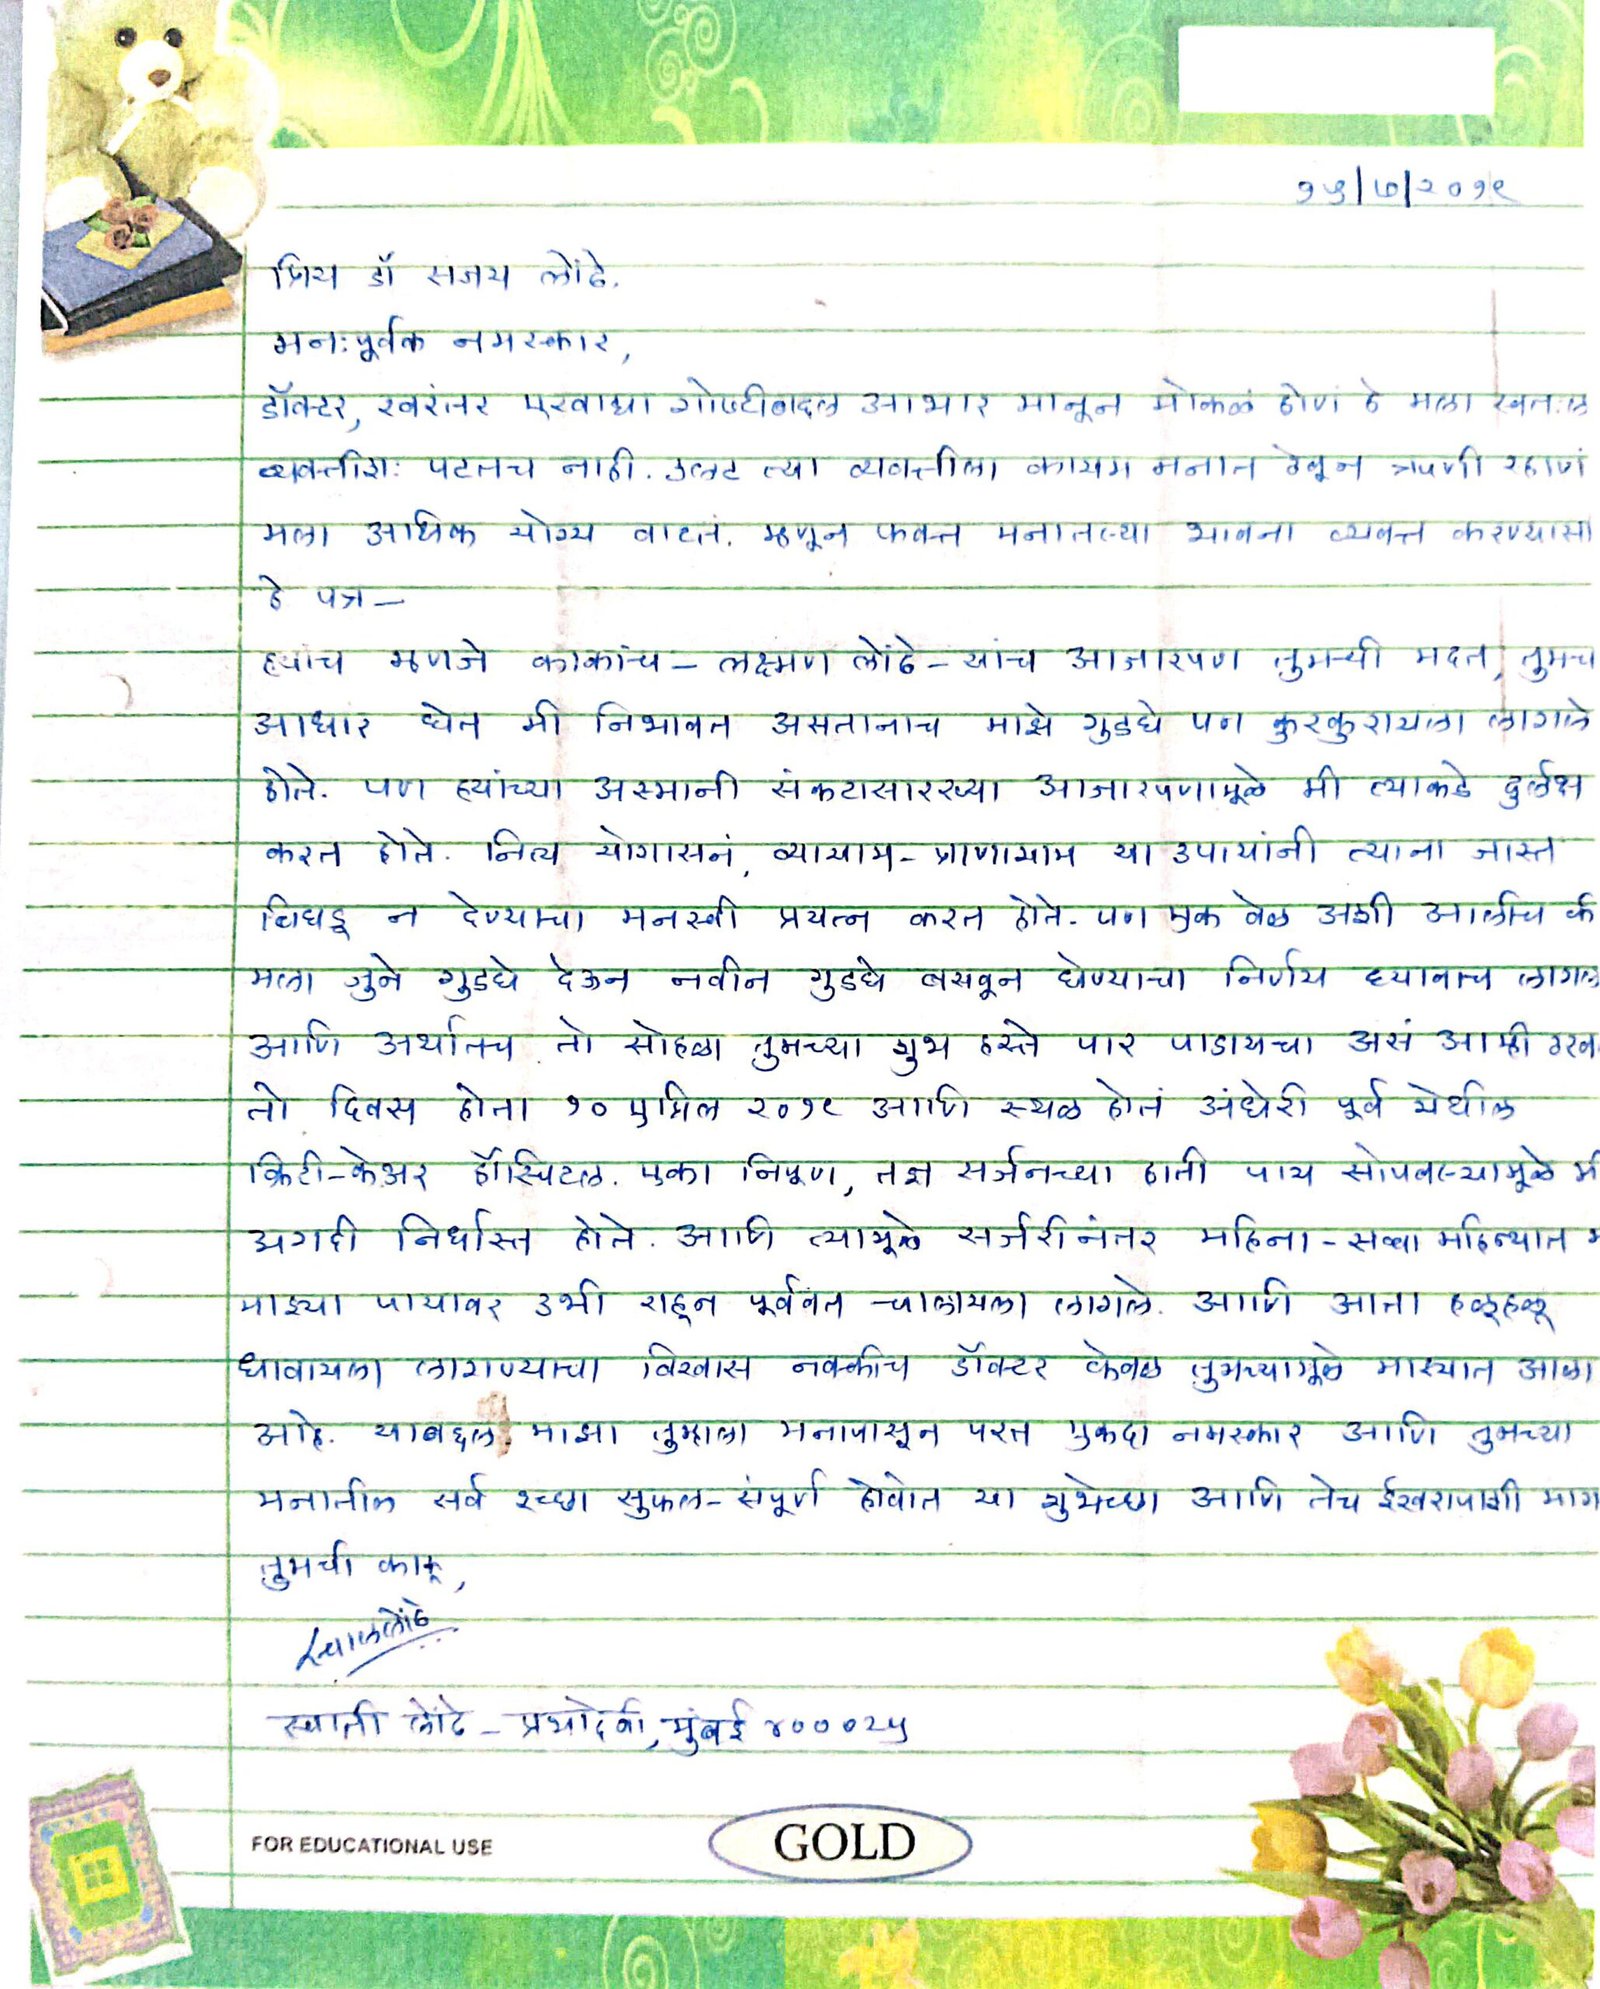 १५/७/२०१९
प्रिय डॉ संजय लोंढे.
मनःपूर्वक नमस्कार,
डॉक्टर, खरंतर एखाद्या गोष्टीबद्दल आभार मानून मोकळं होणं हे मला स्वतःला
व्यक्तीशः पटतच नाही. उलट त्या व्यक्तीला कायम मनात ठेवून ऋणी रहाणं
मला अधिक योग्य वाटतं. म्हणून फक्त मनातल्या भावना व्यक्त करण्यासा
हे पत्र –
ह्यांच म्हणजे काकांच – लक्ष्मण लोंढे – यांच आजारपण तुमची मदत, तुमच
आधार घेत मी निभावत असतानाच माझे गुडघे पण कुरकुरायला लागले
होते. पण ह्यांच्या अस्मानी संकटासारख्या आजारपणामूळे मी त्याकडे दुर्लक्ष
करत होते. नित्य योगासनं, व्यायाम – प्राणायाम या उपायांनी त्याना जास्त
बिघडू न देण्याचा मनस्वी प्रयत्न करत होते. पण एक वेळ अशी आलीच की
मला जुने गुडघे देऊन नवीन गुडघे बसवून घेण्याचा निर्णय घ्यावाच लागल
आणि अर्थातच तो सोहळा तुमच्या शुभ हस्ते पार पाडायचा असं आम्ही ठरव
तो दिवस होता १० एप्रिल २०१९ आणि स्थळ होतं अंधेरी पूर्व येथील
क्रिटी-केअर हॉस्पिटल. एका निपूण, तज्ञ सर्जनच्या हाती पाय सोपवल्यामूळे मी
अगदी निर्धास्त होते. आणि त्यामूळे सर्जरीनंतर महिना – सव्वा महिन्यात
माझ्या पायावर उभी राहून पूर्ववत चालायला लागले. आणि आता हळूहळू
धावायला लागण्याचा विश्वास नक्कीच डॉक्टर केवळ तुमच्यामूळे माझ्यात आला
आहे. याबद्दल माझा तुम्हाला मनापासून परत एकदा नमस्कार आणि तुमच्या
मनातील सर्व इच्छा सुफल – संपूर्ण होवोत या शुभेच्छा आणि तेच ईश्वरापाशी माग
तुमची काकू,
स्वाती लोंढे – प्रभादेवी, मुंबई ४०००२५
FOR EDUCATIONAL USE
GOLD